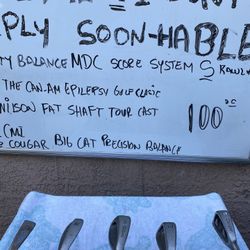 PLY SOON-HABLE
TY BALANCE MDC SCORE SYSTEM S RAWL
THE CAN-AM EPILEPSY GOLF CLASSIC
WILSON FAT SHAFT TOUR CAST 100
COUGAR BIG CAT PRECISION BALANCE